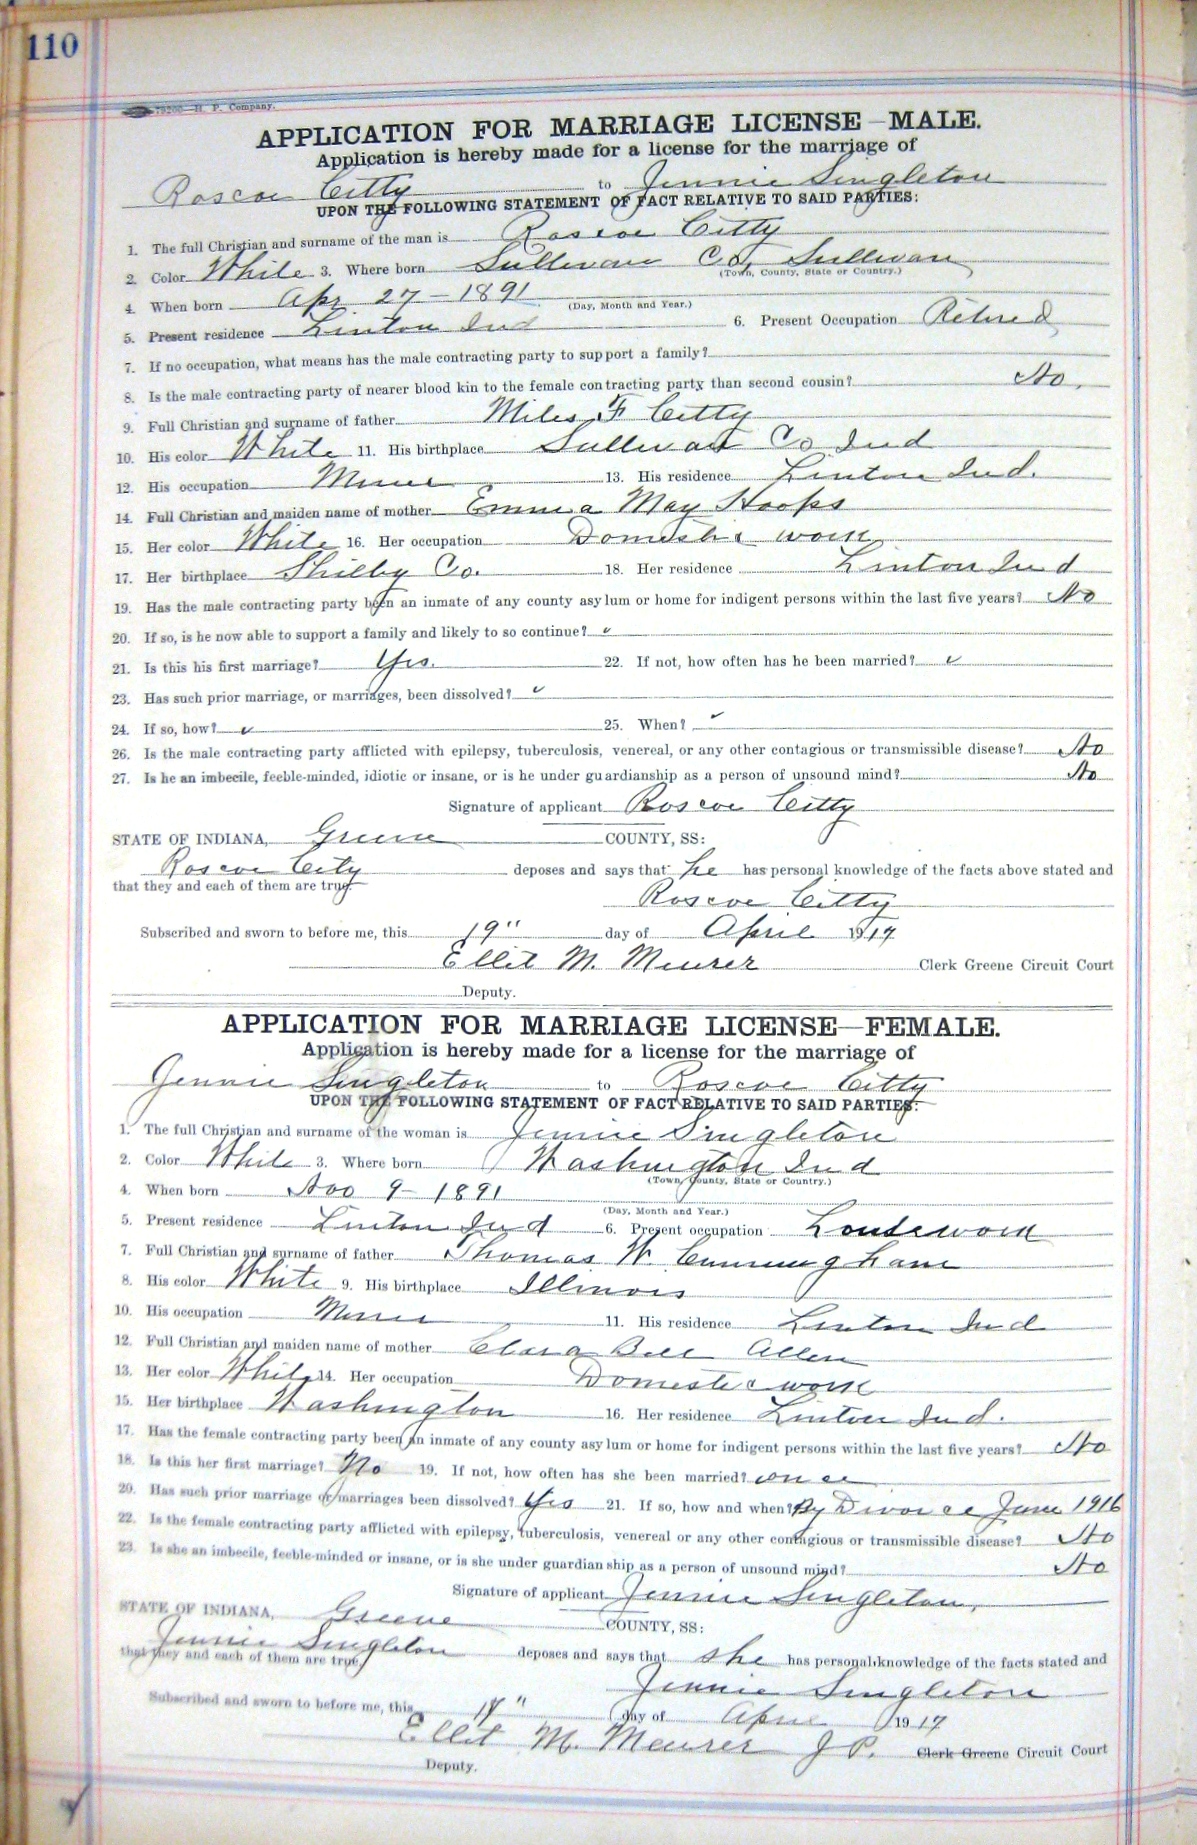 110
79200—H. P. Company.
APPLICATION FOR MARRIAGE LICENSE—MALE.
Application is hereby made for a license for the marriage of
Roscoe Citty to Jennie Singleton
UPON THE FOLLOWING STATEMENT OF FACT RELATIVE TO SAID PARTIES:
1. The full Christian and surname of the man is Roscoe Citty
2. Color White 3. Where born Sullivan Co, Sullivan
(Town, County, State or Country.)
4. When born Apr 27 - 1891
(Day, Month and Year.)
5. Present residence Linton Ind 6. Present Occupation Retired
7. If no occupation, what means has the male contracting party to support a family?
8. Is the male contracting party of nearer blood kin to the female contracting party than second cousin? No.
9. Full Christian and surname of father Miles F Citty
10. His color White 11. His birthplace Sullivan Co Ind
12. His occupation Miner 13. His residence Linton Ind.
14. Full Christian and maiden name of mother Emma May Hoops
15. Her color White 16. Her occupation Domestic work
17. Her birthplace Shelby Co. 18. Her residence Linton Ind
19. Has the male contracting party been an inmate of any county asylum or home for indigent persons within the last five years? No
20. If so, is he now able to support a family and likely to so continue? ✓
21. Is this his first marriage? Yes. 22. If not, how often has he been married? ✓
23. Has such prior marriage, or marriages, been dissolved? ✓
24. If so, how? ✓ 25. When? ✓
26. Is the male contracting party afflicted with epilepsy, tuberculosis, venereal, or any other contagious or transmissible disease? No
27. Is he an imbecile, feeble-minded, idiotic or insane, or is he under guardianship as a person of unsound mind? No
Signature of applicant Roscoe Citty
STATE OF INDIANA, Greene COUNTY, SS:
Roscoe City deposes and says that he has personal knowledge of the facts above stated and
that they and each of them are true.
Roscoe Citty
Subscribed and sworn to before me, this 19" day of April 1917
M. Meurer Clerk Greene Circuit Court
Deputy.
APPLICATION FOR MARRIAGE LICENSE—FEMALE.
Application is hereby made for a license for the marriage of
Jennie Singleton to Roscoe Citty
UPON THE FOLLOWING STATEMENT OF FACT RELATIVE TO SAID PARTIES:
1. The full Christian and surname of the woman is Jennie Singleton
2. Color White 3. Where born Washington Ind
(Town, County, State or Country.)
4. When born Nov 9 - 1891
(Day, Month and Year.)
5. Present residence Linton Ind 6. Present occupation Housework
7. Full Christian and surname of father Thomas W. Cunningham
8. His color White 9. His birthplace Illinois
10. His occupation Miner 11. His residence Linton Ind
12. Full Christian and maiden name of mother Clara Bell Allen
13. Her color White 14. Her occupation Domestic work
15. Her birthplace Washington 16. Her residence Linton Ind.
17. Has the female contracting party been an inmate of any county asylum or home for indigent persons within the last five years? No
18. Is this her first marriage? No 19. If not, how often has she been married? once
20. Has such prior marriage or marriages been dissolved? Yes 21. If so, how and when? By Divorce June 1916
22. Is the female contracting party afflicted with epilepsy, tuberculosis, venereal or any other contagious or transmissible disease? No
23. Is she an imbecile, feeble-minded or insane, or is she under guardianship as a person of unsound mind? No
Signature of applicant Jennie Singleton,
STATE OF INDIANA, Greene COUNTY, SS:
Jennie Singleton deposes and says that she has personal knowledge of the facts stated and
that they and each of them are true.
Jennie Singleton
Subscribed and sworn to before me, this day of April 1917
M. Meurer J P. Clerk Greene Circuit Court
Deputy.